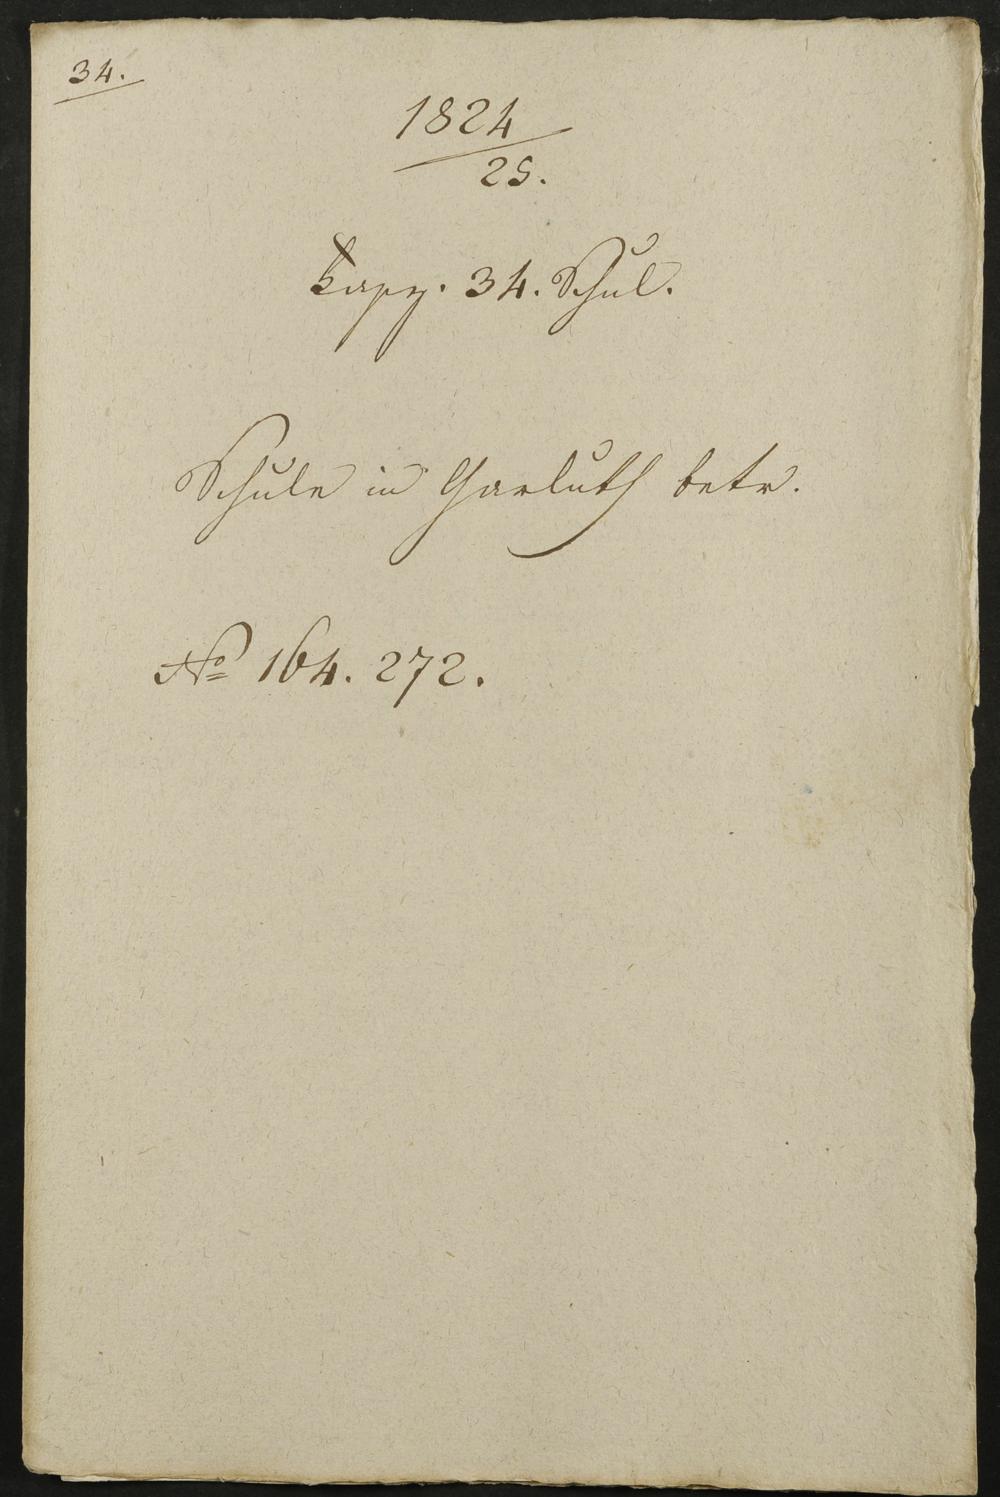 34.
1824
25.
34. Schul.
Schule in Garluth betr.
No 164. 272.